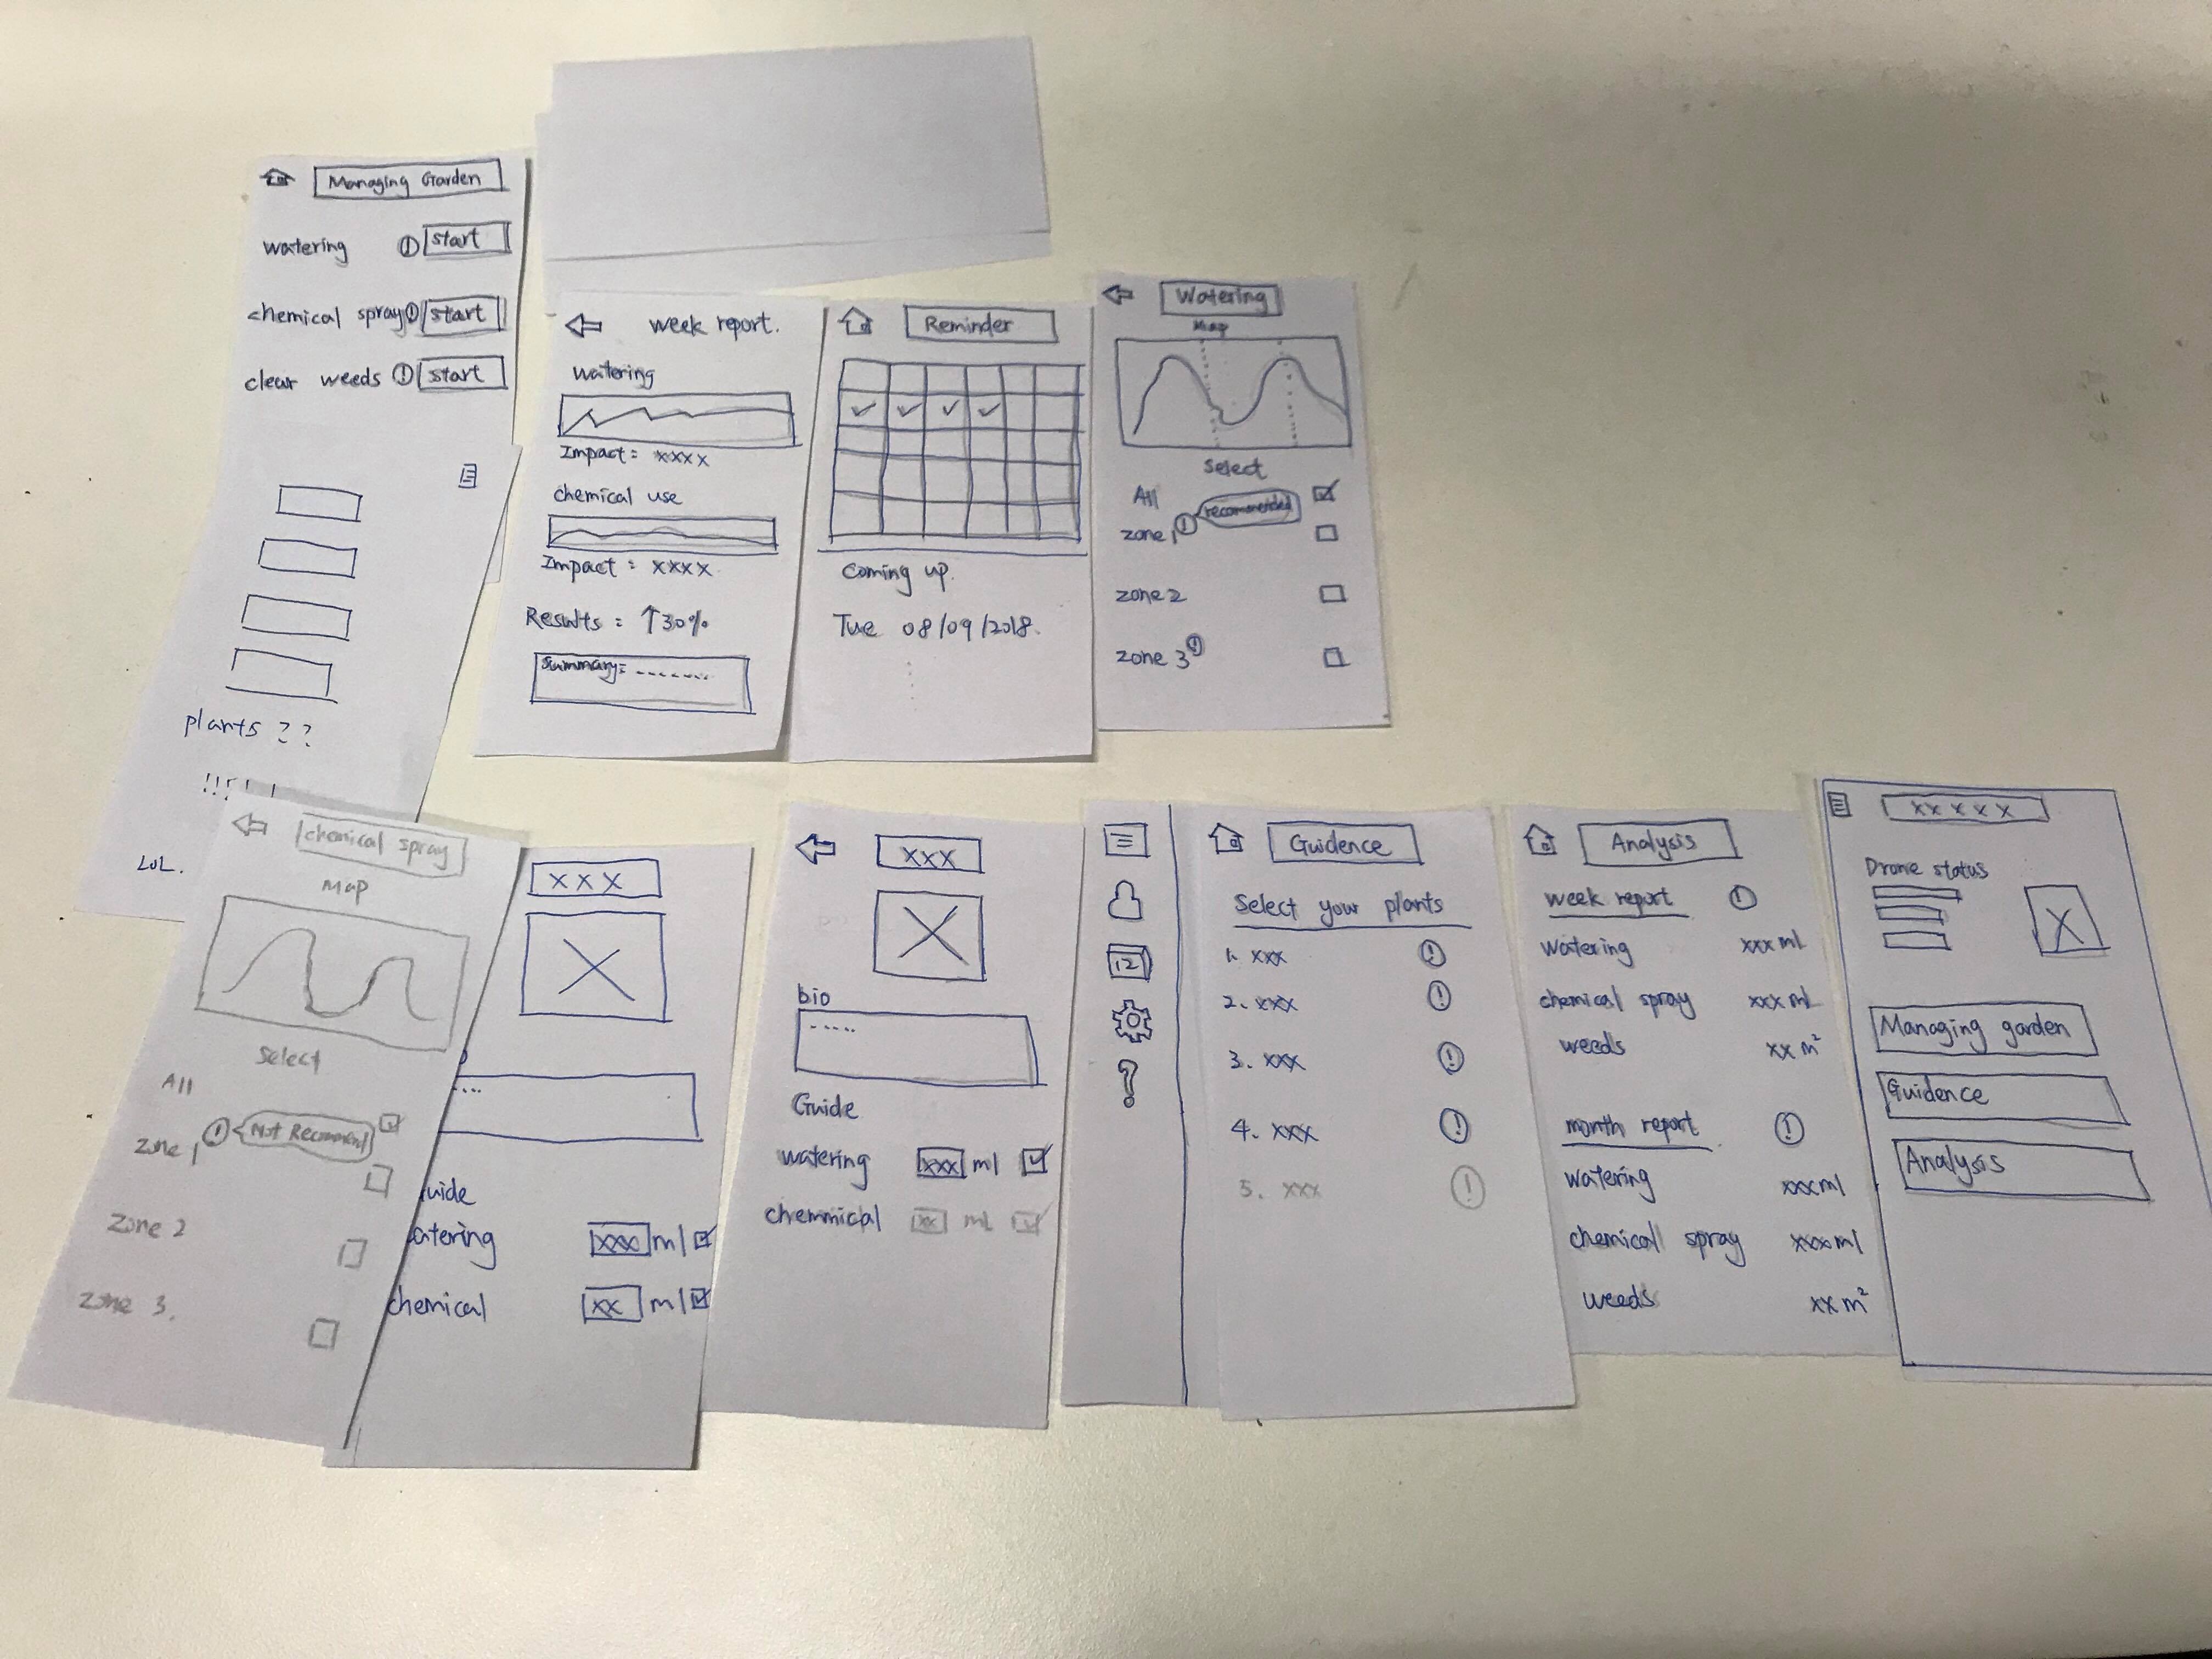 Managing Garden
watering ! start
chemical spray ! start
clear weeds ! start
plants ??
LOL.
week report.
watering
Impact: xxxx
chemical use
Impact: xxxx
Results: ↑30%
Summary: -------
Reminder
✓ ✓ ✓ ✓
Coming up.
Tue 08/09/2018.
Watering
Map
Select
All
recommended
zone 1 !
zone 2
zone 3 !
chemical spray
Map
Select
All
zone 1 ! Not Recommend
zone 2
zone 3.
XXX
uide
atering xxx ml
chemical xx ml
XXX
bio
-----
Guide
watering xxx ml
chemmical xx ml
12
?
Guidence
Select your plants
1. xxx !
2. xxx !
3. xxx !
4. xxx !
5. xxx !
Analysis
week report !
watering xxx ml
chemical spray xxx ml
weeds xx m²
month report !
watering xxx ml
chemical spray xxxx ml
weeds xx m²
xxxxx
Drone status
Managing garden
Guidence
Analysis